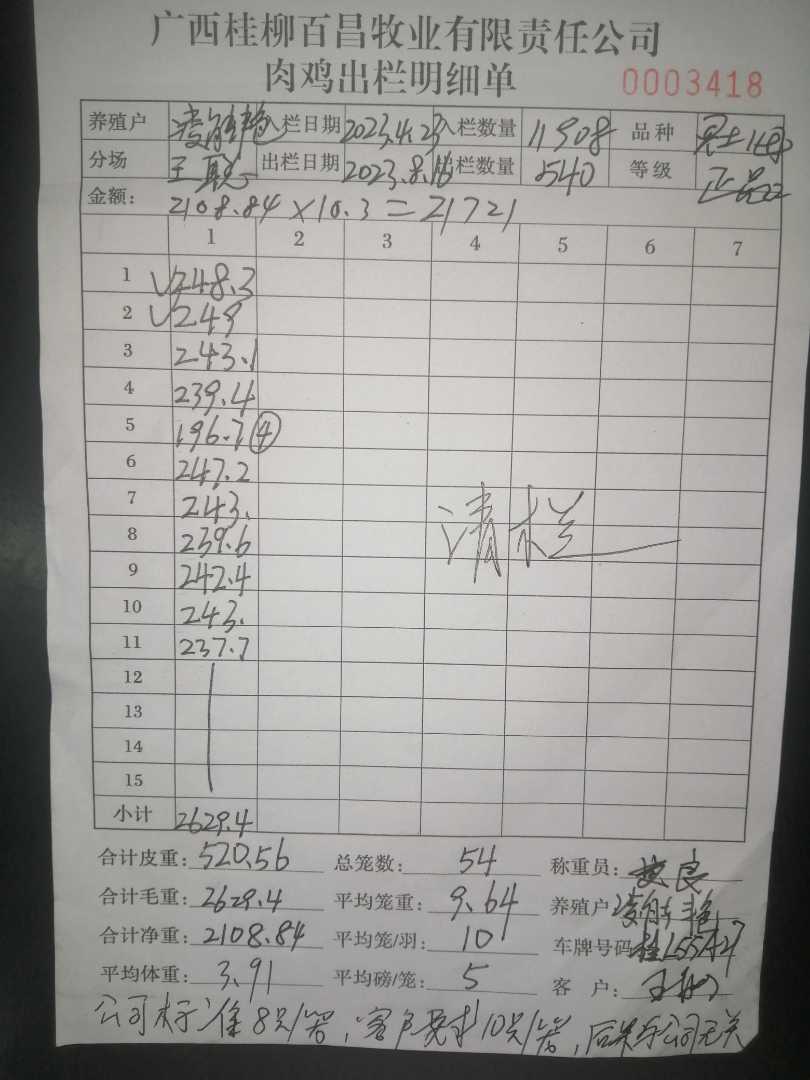 广西桂柳百昌牧业有限责任公司
肉鸡出栏明细单 0003418
养殖户 入栏日期 2023.4.23 入栏数量 11908 品种
分场 王聪 出栏日期 2023.8.16 出栏数量 540 等级 正品
金额: 2108.84×10.3=21721
1 2 3 4 5 6 7
1 √248.3
2 √249
3 243.1
4 239.4
5 196.7 ④
6 247.2
7 243.
8 239.6
9 242.4
10 243.
11 237.7
清栏
12
13
14
15
小计 2629.4
合计皮重: 520.56 总笼数: 54 称重员: 良
合计毛重: 2629.4 平均笼重: 9.64 养殖户:
合计净重: 2108.84 平均笼/羽: 10 车牌号码:
平均体重: 3.91 平均磅/笼: 5 客户: 王
公司标准8只/笼,客户要求10只/笼,后果与公司无关